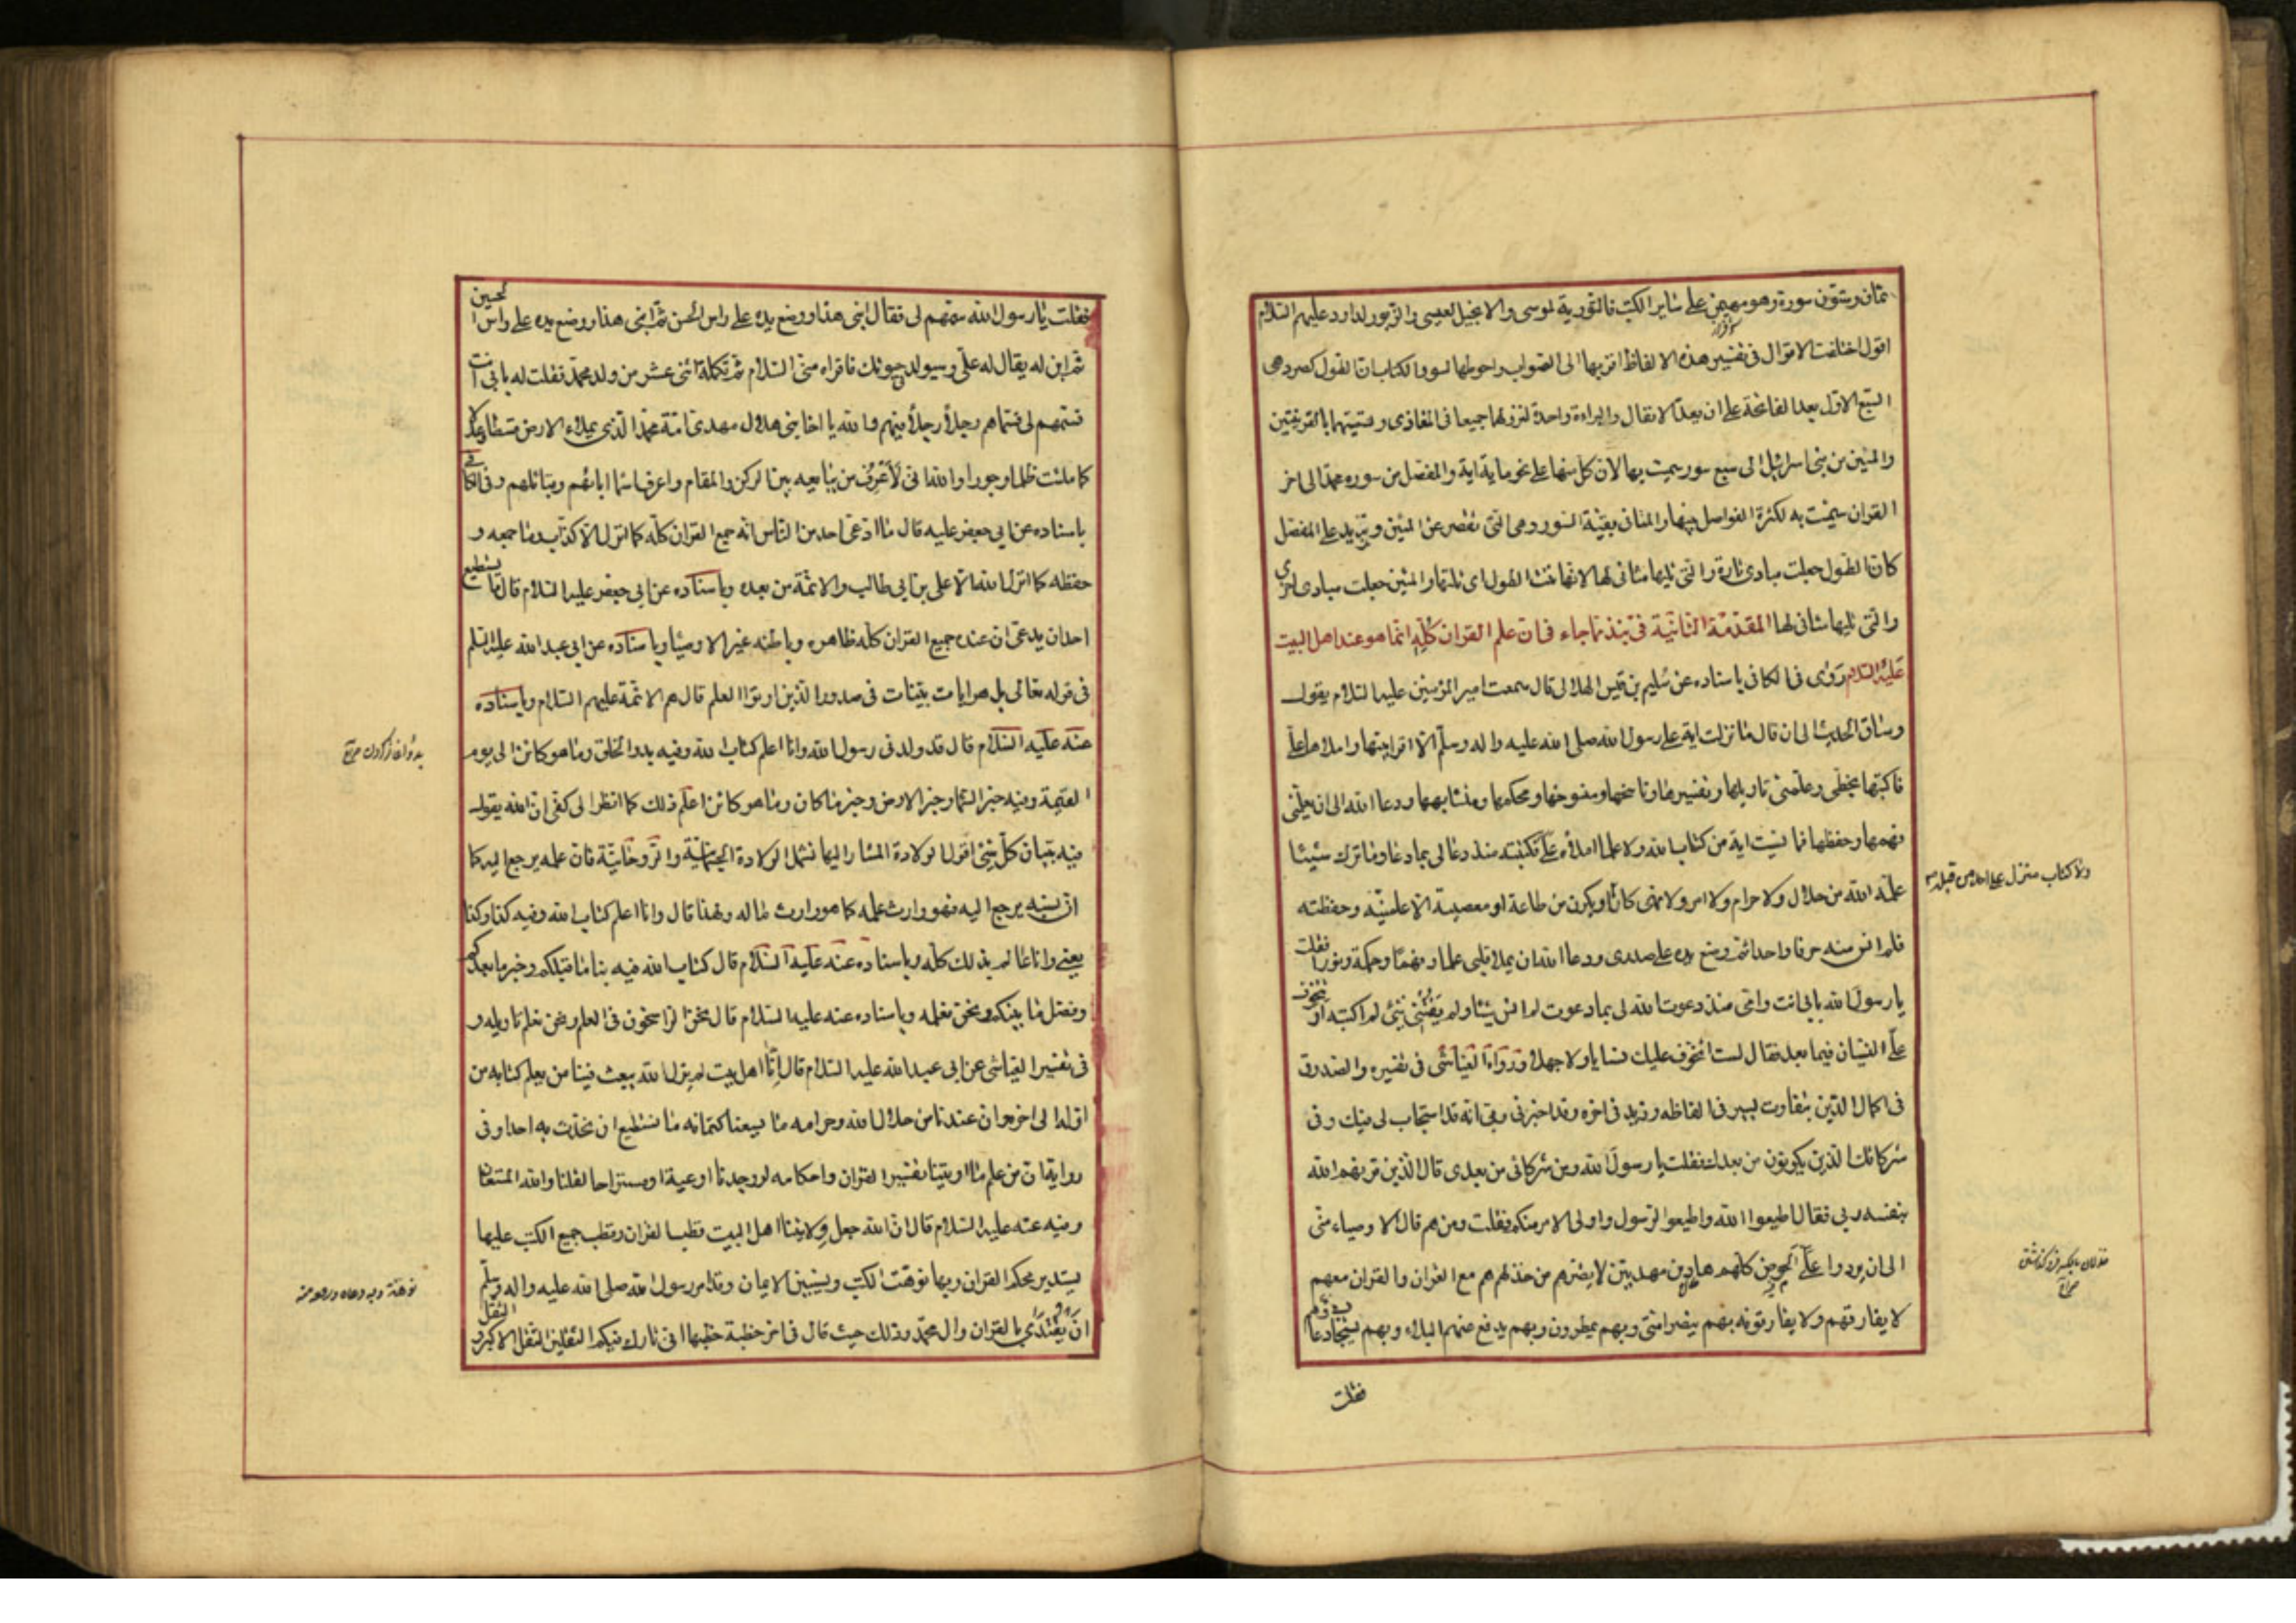 ثمان وستون سورة وهو مهيمن على ساير الكتب فالتورية لموسى والانجيل لعيسى والزبور لداود عليهم السلام
اقول اختلفت الاقوال في تفسير هذه الالفاظ اقربها الى الصواب واحوطها لسور الكتاب ان الطول كصرد هي
السبع الاول بعد الفاتحة على ان يعد الانفال والبراءة واحدة لنزولهما جميعا في المغازي وتسميتهما بالقرينتين
والمئين من بني اسرائيل الى سبع سور سميت بها لان كل منها على نحو ماية اية والمفصل من سورة محمد الى اخر
القران سميت به لكثرة الفواصل بينها والمثاني بقية السور وهي التي تقصر عن المئين وتزيد على المفصل
كان الطول جعلت مبادي تارة والتي تليها مثاني لها لانها ثنت الطول اي تلتها والمئين جعلت مبادي اخرى
والتي تليها مثاني لها المقدمة الثانية في نبذ مما جاء في ان علم القران كله انما هو عند اهل البيت
عليهم السلام روى في الكافي باسناده عن سليم بن قيس الهلالي قال سمعت امير المؤمنين عليه السلام يقول
وساق الحديث الى ان قال ما نزلت اية على رسول الله صلى الله عليه واله وسلم الا اقرانيها واملاها علي
فاكتبها بخطي وعلمني تاويلها وتفسيرها وناسخها ومنسوخها ومحكمها ومتشابهها ودعا الله الى ان يعلمني
فهمها وحفظها فما نسيت اية من كتاب الله ولا علما املاه علي فكتبته منذ دعا لي بما دعا وما ترك شيئا
علمه الله من حلال ولا حرام ولا امر ولا نهي كان او يكون من طاعة او معصية الا علمنيه وحفظته
ولا كتاب منزل على احد من قبله
فلم انس منه حرفا واحدا ثم وضع يده على صدري ودعا الله ان يملا قلبي علما وفهما وحكمة ونورا فقلت
يا رسول الله بابي انت وامي منذ دعوت الله لي بما دعوت لم انس شيئا ولم يفتني شئ لم اكتبه او تتخوف
علي النسيان فيما بعد فقال لست اتخوف عليك نسيانا ولا جهلا ورواه العياشي في تفسيره والصدوق
في اكمال الدين بتفاوت يسير في الفاظه وزيد في اخره وقد اخبرني ربي انه قد استجاب لي فيك وفي
شركائك الذين يكونون من بعدك فقلت يا رسول الله ومن شركائي من بعدي قال الذين قرنهم الله
بنفسه وبي فقال اطيعوا الله واطيعوا الرسول واولي الامر منكم فقلت ومن هم قال الاوصياء مني
الى ان يردوا علي الحوض كلهم هادين مهديين لا يضرهم من خذلهم هم مع القران والقران معهم
لا يفارقهم ولا يفارقونه بهم ينصر امتي وبهم يمطرون وبهم يدفع عنهم البلاء وبهم يستجاب دعاؤهم
فقلت
فقلت يا رسول الله سمهم لي فقال ابني هذا ووضع يده على راس الحسن ثم ابني هذا ووضع يده على راس الحسين
ثم ابن له يقال له علي وسيولد في حيوتك فاقراه مني السلام ثم تكملة اثني عشر من ولد محمد فقلت له بابي انت
فسمهم لي فسماهم رجلا رجلا فيهم والله يا اخا بني هلال مهدي امة محمد الذي يملاء الارض قسطا وعدلا
كما ملئت ظلما وجورا والله اني لاعرف من يبايعه بين الركن والمقام واعرف اسماء ابائهم وقبائلهم وفي الكافي
باسناده عن ابي جعفر عليه قال ما ادعى احد من الناس انه جمع القران كله كما انزل الا كذاب وما جمعه و
حفظه كما انزل الله الا علي بن ابي طالب والائمة من بعده وباسناده عن ابي جعفر عليه السلام قال ما يستطيع
احد ان يدعي ان عنده جميع القران كله ظاهره وباطنه غير الاوصياء وباسناده عن ابي عبد الله عليه السلم
في قوله تعالى بل هو ايات بينات في صدور الذين اوتوا العلم قال هم الائمة عليهم السلام وباسناده
عنه عليه السلام قال قد ولدني رسول الله وانا اعلم كتاب الله وفيه بدو الخلق وما هو كائن الى يوم
القيمة وفيه خبر السماء وخبر الارض وخبر ما كان وما هو كائن اعلم ذلك كما انظر الى كفي ان الله يقول
فيه تبيان كل شئ اقول الولادة المشار اليها تشمل الولادة الجسمانية والروحانية فان علمه يرجع اليه كما
ان نسبه يرجع اليه فهو وارث علمه كما هو وارث ماله ولهذا قال وانا اعلم كتاب الله وفيه كذا وكذا
يعني وانا عالم بذلك كله وباسناده عنه عليه السلام قال كتاب الله فيه نبا ما قبلكم وخبر ما بعدكم
وفصل ما بينكم ونحن نعلمه وباسناده عنه عليه السلام قال نحن الراسخون في العلم ونحن نعلم تاويله و
في تفسير العياشي عن ابي عبد الله عليه السلام قال انا اهل بيت لم يزل الله يبعث فينا من يعلم كتابه من
اوله الى اخره وان عندنا من حلال الله وحرامه ما يسعنا كتمانه ما نستطيع ان نحدث به احدا وفي
رواية ان من علم ما اوتينا تفسير القران واحكامه لو وجدنا اوعية او مستراحا لقلنا والله المستعان
وفيه عنه عليه السلام قال ان الله جعل ولايتنا اهل البيت قطب القران وقطب جميع الكتب عليها
يستدير محكم القران وبها نوهت الكتب ويستبين الايمان وقد امر رسول الله صلى الله عليه واله وسلم
ان يقتدى بالقران وال محمد وذلك حيث قال في اخر خطبة خطبها اني تارك فيكم الثقلين الثقل الاكبر و الثقل